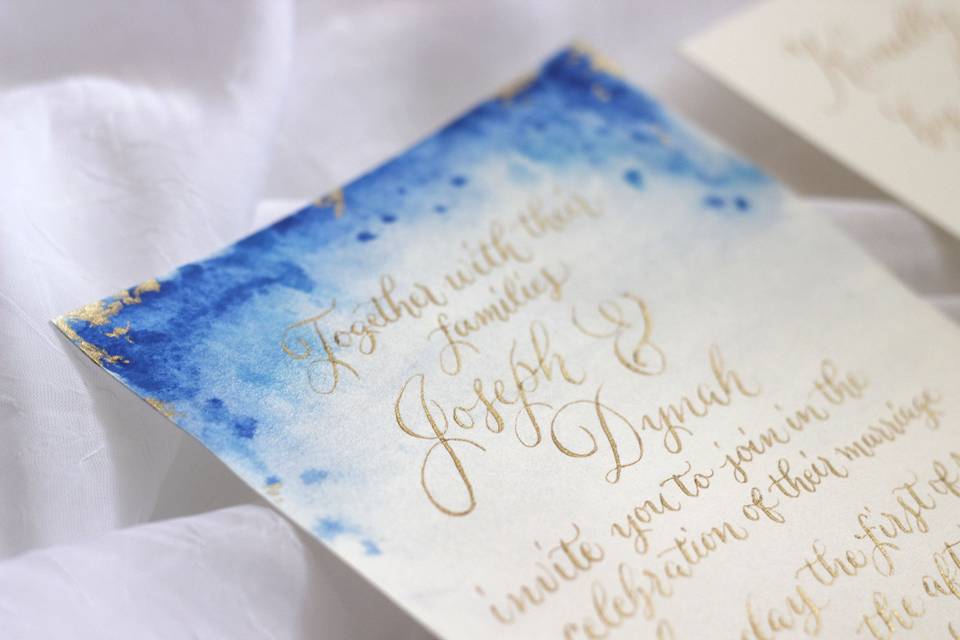 Together with their
families
Joseph &
Dynah
invite you to join in the
celebration of their marriage
the first of
the
Kindly